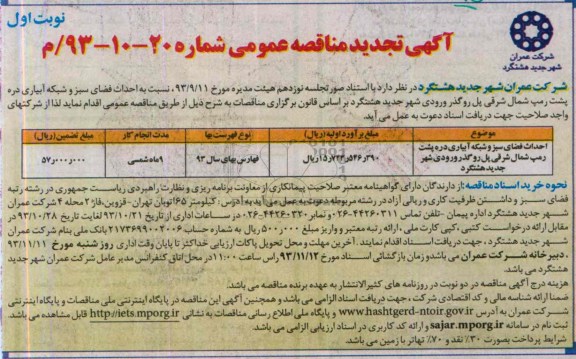 نوبت اول
شرکت عمران
شهر جدید هشتگرد
آگهی تجدید مناقصه عمومی شماره ۲۰-۱۰-۹۳/م
شرکت عمران شهر جدید هشتگرد در نظر دارد با استناد صورتجلسه نوزدهم هیئت مدیره مورخ ۹۳/۹/۱۱، نسبت به احداث فضای سبز و شبکه آبیاری دره
پشت رمپ شمال شرقی پل روگذر ورودی شهر جدید هشتگرد بر اساس قانون برگزاری مناقصات به شرح ذیل از طریق مناقصه عمومی اقدام نماید لذا از شرکتهای
واجد صلاحیت جهت دریافت اسناد دعوت به عمل می آید.
موضوع مبلغ برآورد اولیه (ریال) نوع فهرست بها مدت انجام کار مبلغ تضمین (ریال)
احداث فضای سبز و شبکه آبیاری دره پشت
رمپ شمال شرقی پل روگذر ورودی شهر
جدید هشتگرد
فهارس بهای سال ۹۳ ۹ ماه شمسی
نحوه خرید اسناد مناقصه: از دارندگان دارای گواهینامه معتبر صلاحیت پیمانکاری از معاونت برنامه ریزی و نظارت راهبردی ریاست جمهوری در رشته رتبه
فضای سبز و داشتن ظرفیت کاری و ریالی آزاد در رشته مربوطه دعوت به عمل می آید به آدرس: کیلومتر ۶۵ اتوبان تهران-قزوین، فاز ۲ محله ۴ شرکت عمران
شهر جدید هشتگرد اداره پیمان -تلفن تماس ۴۴۲۶۰۳۱۱-۰۲۶ و نمابر ۴۴۲۶۰۳۲۰-۰۲۶ در ساعات اداری از تاریخ ۹۳/۱۰/۲۱ لغایت تاریخ ۹۳/۱۰/۲۸ در
مقابل ارائه درخواست کتبی، کپی کارت ملی، ارائه رتبه معتبر و واریز مبلغ ۵۰۰٫۰۰۰ ریال به شماره حساب ۲۱۷۳۶۹۹۰۰۲۰۰۶ بانک ملی بنام شرکت عمران
شهر جدید هشتگرد، جهت دریافت اسناد اقدام نمایند. آخرین مهلت و محل تحویل پاکات ارزیابی حداکثر تا پایان وقت اداری روز شنبه مورخ ۹۳/۱۱/۱۱
، دبیرخانه شرکت عمران می باشد و زمان بازگشائی اسناد مورخ ۹۳/۱۱/۱۲ راس ساعت ۱۱:۰۰ در محل اتاق کنفرانس مدیر عامل شرکت عمران شهر جدید
هشتگرد می باشد.
هزینه درج آگهی مناقصه در دو نوبت در روزنامه های کثیرالانتشار به عهده برنده مناقصه می باشد.
ضمنا ارائه شناسه ملی و کد اقتصادی شرکت، جهت دریافت اسناد الزامی می باشد و همچنین آگهی این مناقصه در پایگاه اینترنتی ملی مناقصات و پایگاه اینترنتی
شرکت عمران به آدرس www.hashtgerd-ntoir.gov.ir و پایگاه ملی اطلاع رسانی مناقصات به نشانی http://iets.mporg.ir قابل مشاهده می باشد.
ثبت نام در سامانه sajar.mporg.ir و ارائه کد کاربری در اسناد ارزیابی الزامی می باشد.
شرایط پرداخت بصورت ۳۰٪ نقد و ۷۰٪ تهاتر با زمین می باشد.